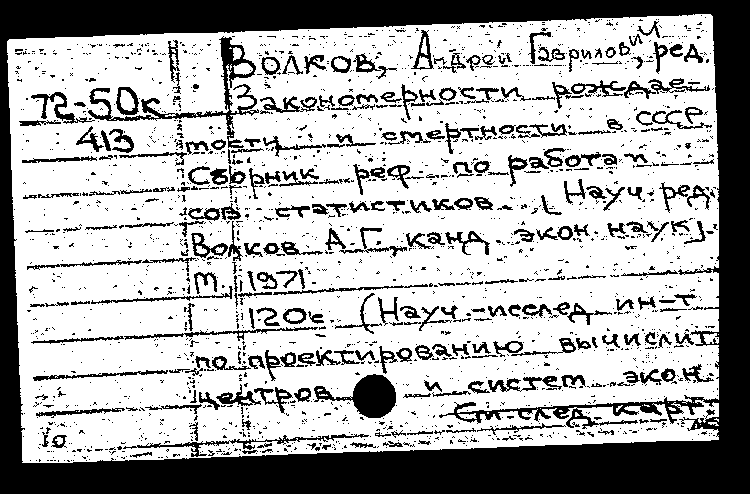 Волков, Андрей Гаврилович, ред.
72-50к
413
Закономерности рождае-
мости и смертности в СССР
Сборник реф. по работам
сов. статистиков. [Науч. ред.
Волков А.Г., канд. экон. наук].
М., 1971.
120с. (Науч.-исслед. ин-т
по проектированию вычислит.
центров и систем экон.
См. след. карт.
10